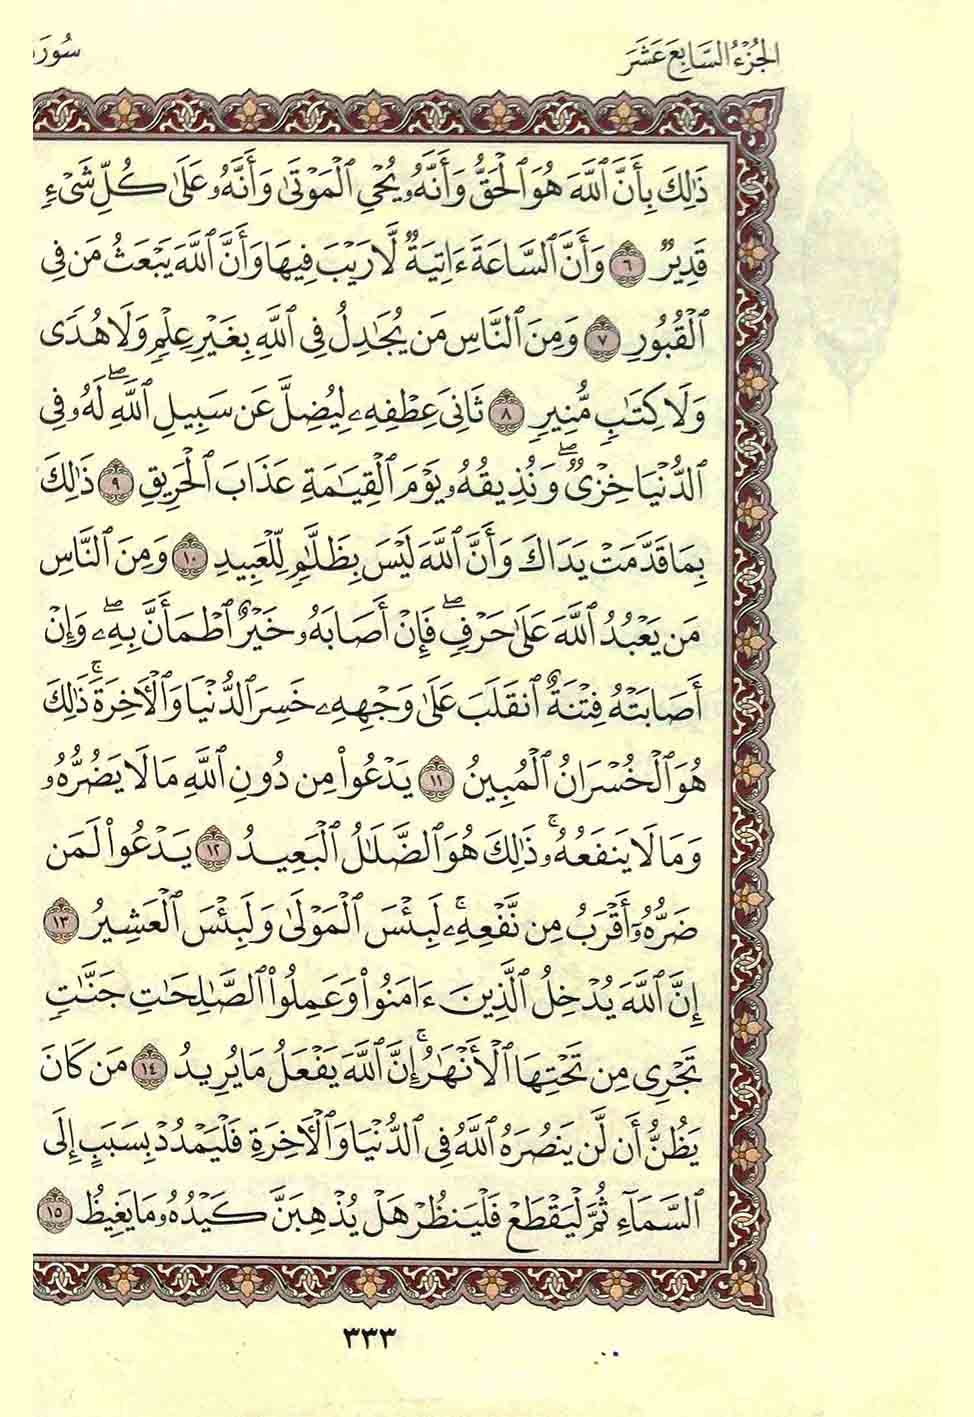 الجزء السابع عشر
سورة
ذَٰلِكَ بِأَنَّ ٱللَّهَ هُوَ ٱلْحَقُّ وَأَنَّهُۥ يُحْىِ ٱلْمَوْتَىٰ وَأَنَّهُۥ عَلَىٰ كُلِّ شَىْءٍ
قَدِيرٌ ٦ وَأَنَّ ٱلسَّاعَةَ ءَاتِيَةٌ لَّا رَيْبَ فِيهَا وَأَنَّ ٱللَّهَ يَبْعَثُ مَن فِى
ٱلْقُبُورِ ٧ وَمِنَ ٱلنَّاسِ مَن يُجَٰدِلُ فِى ٱللَّهِ بِغَيْرِ عِلْمٍ وَلَا هُدًى
وَلَا كِتَٰبٍ مُّنِيرٍ ٨ ثَانِىَ عِطْفِهِۦ لِيُضِلَّ عَن سَبِيلِ ٱللَّهِ ۖ لَهُۥ فِى
ٱلدُّنْيَا خِزْىٌ ۖ وَنُذِيقُهُۥ يَوْمَ ٱلْقِيَٰمَةِ عَذَابَ ٱلْحَرِيقِ ٩ ذَٰلِكَ
بِمَا قَدَّمَتْ يَدَاكَ وَأَنَّ ٱللَّهَ لَيْسَ بِظَلَّٰمٍ لِّلْعَبِيدِ ١٠ وَمِنَ ٱلنَّاسِ
مَن يَعْبُدُ ٱللَّهَ عَلَىٰ حَرْفٍ ۖ فَإِنْ أَصَابَهُۥ خَيْرٌ ٱطْمَأَنَّ بِهِۦ ۖ وَإِنْ
أَصَابَتْهُ فِتْنَةٌ ٱنقَلَبَ عَلَىٰ وَجْهِهِۦ خَسِرَ ٱلدُّنْيَا وَٱلْءَاخِرَةَ ۚ ذَٰلِكَ
هُوَ ٱلْخُسْرَانُ ٱلْمُبِينُ ١١ يَدْعُوا۟ مِن دُونِ ٱللَّهِ مَا لَا يَضُرُّهُۥ
وَمَا لَا يَنفَعُهُۥ ۚ ذَٰلِكَ هُوَ ٱلضَّلَٰلُ ٱلْبَعِيدُ ١٢ يَدْعُوا۟ لَمَن
ضَرُّهُۥٓ أَقْرَبُ مِن نَّفْعِهِۦ ۚ لَبِئْسَ ٱلْمَوْلَىٰ وَلَبِئْسَ ٱلْعَشِيرُ ١٣
إِنَّ ٱللَّهَ يُدْخِلُ ٱلَّذِينَ ءَامَنُوا۟ وَعَمِلُوا۟ ٱلصَّٰلِحَٰتِ جَنَّٰتٍ
تَجْرِى مِن تَحْتِهَا ٱلْأَنْهَٰرُ ۚ إِنَّ ٱللَّهَ يَفْعَلُ مَا يُرِيدُ ١٤ مَن كَانَ
يَظُنُّ أَن لَّن يَنصُرَهُ ٱللَّهُ فِى ٱلدُّنْيَا وَٱلْءَاخِرَةِ فَلْيَمْدُدْ بِسَبَبٍ إِلَى
ٱلسَّمَآءِ ثُمَّ لْيَقْطَعْ فَلْيَنظُرْ هَلْ يُذْهِبَنَّ كَيْدُهُۥ مَا يَغِيظُ ١٥
٣٣٣